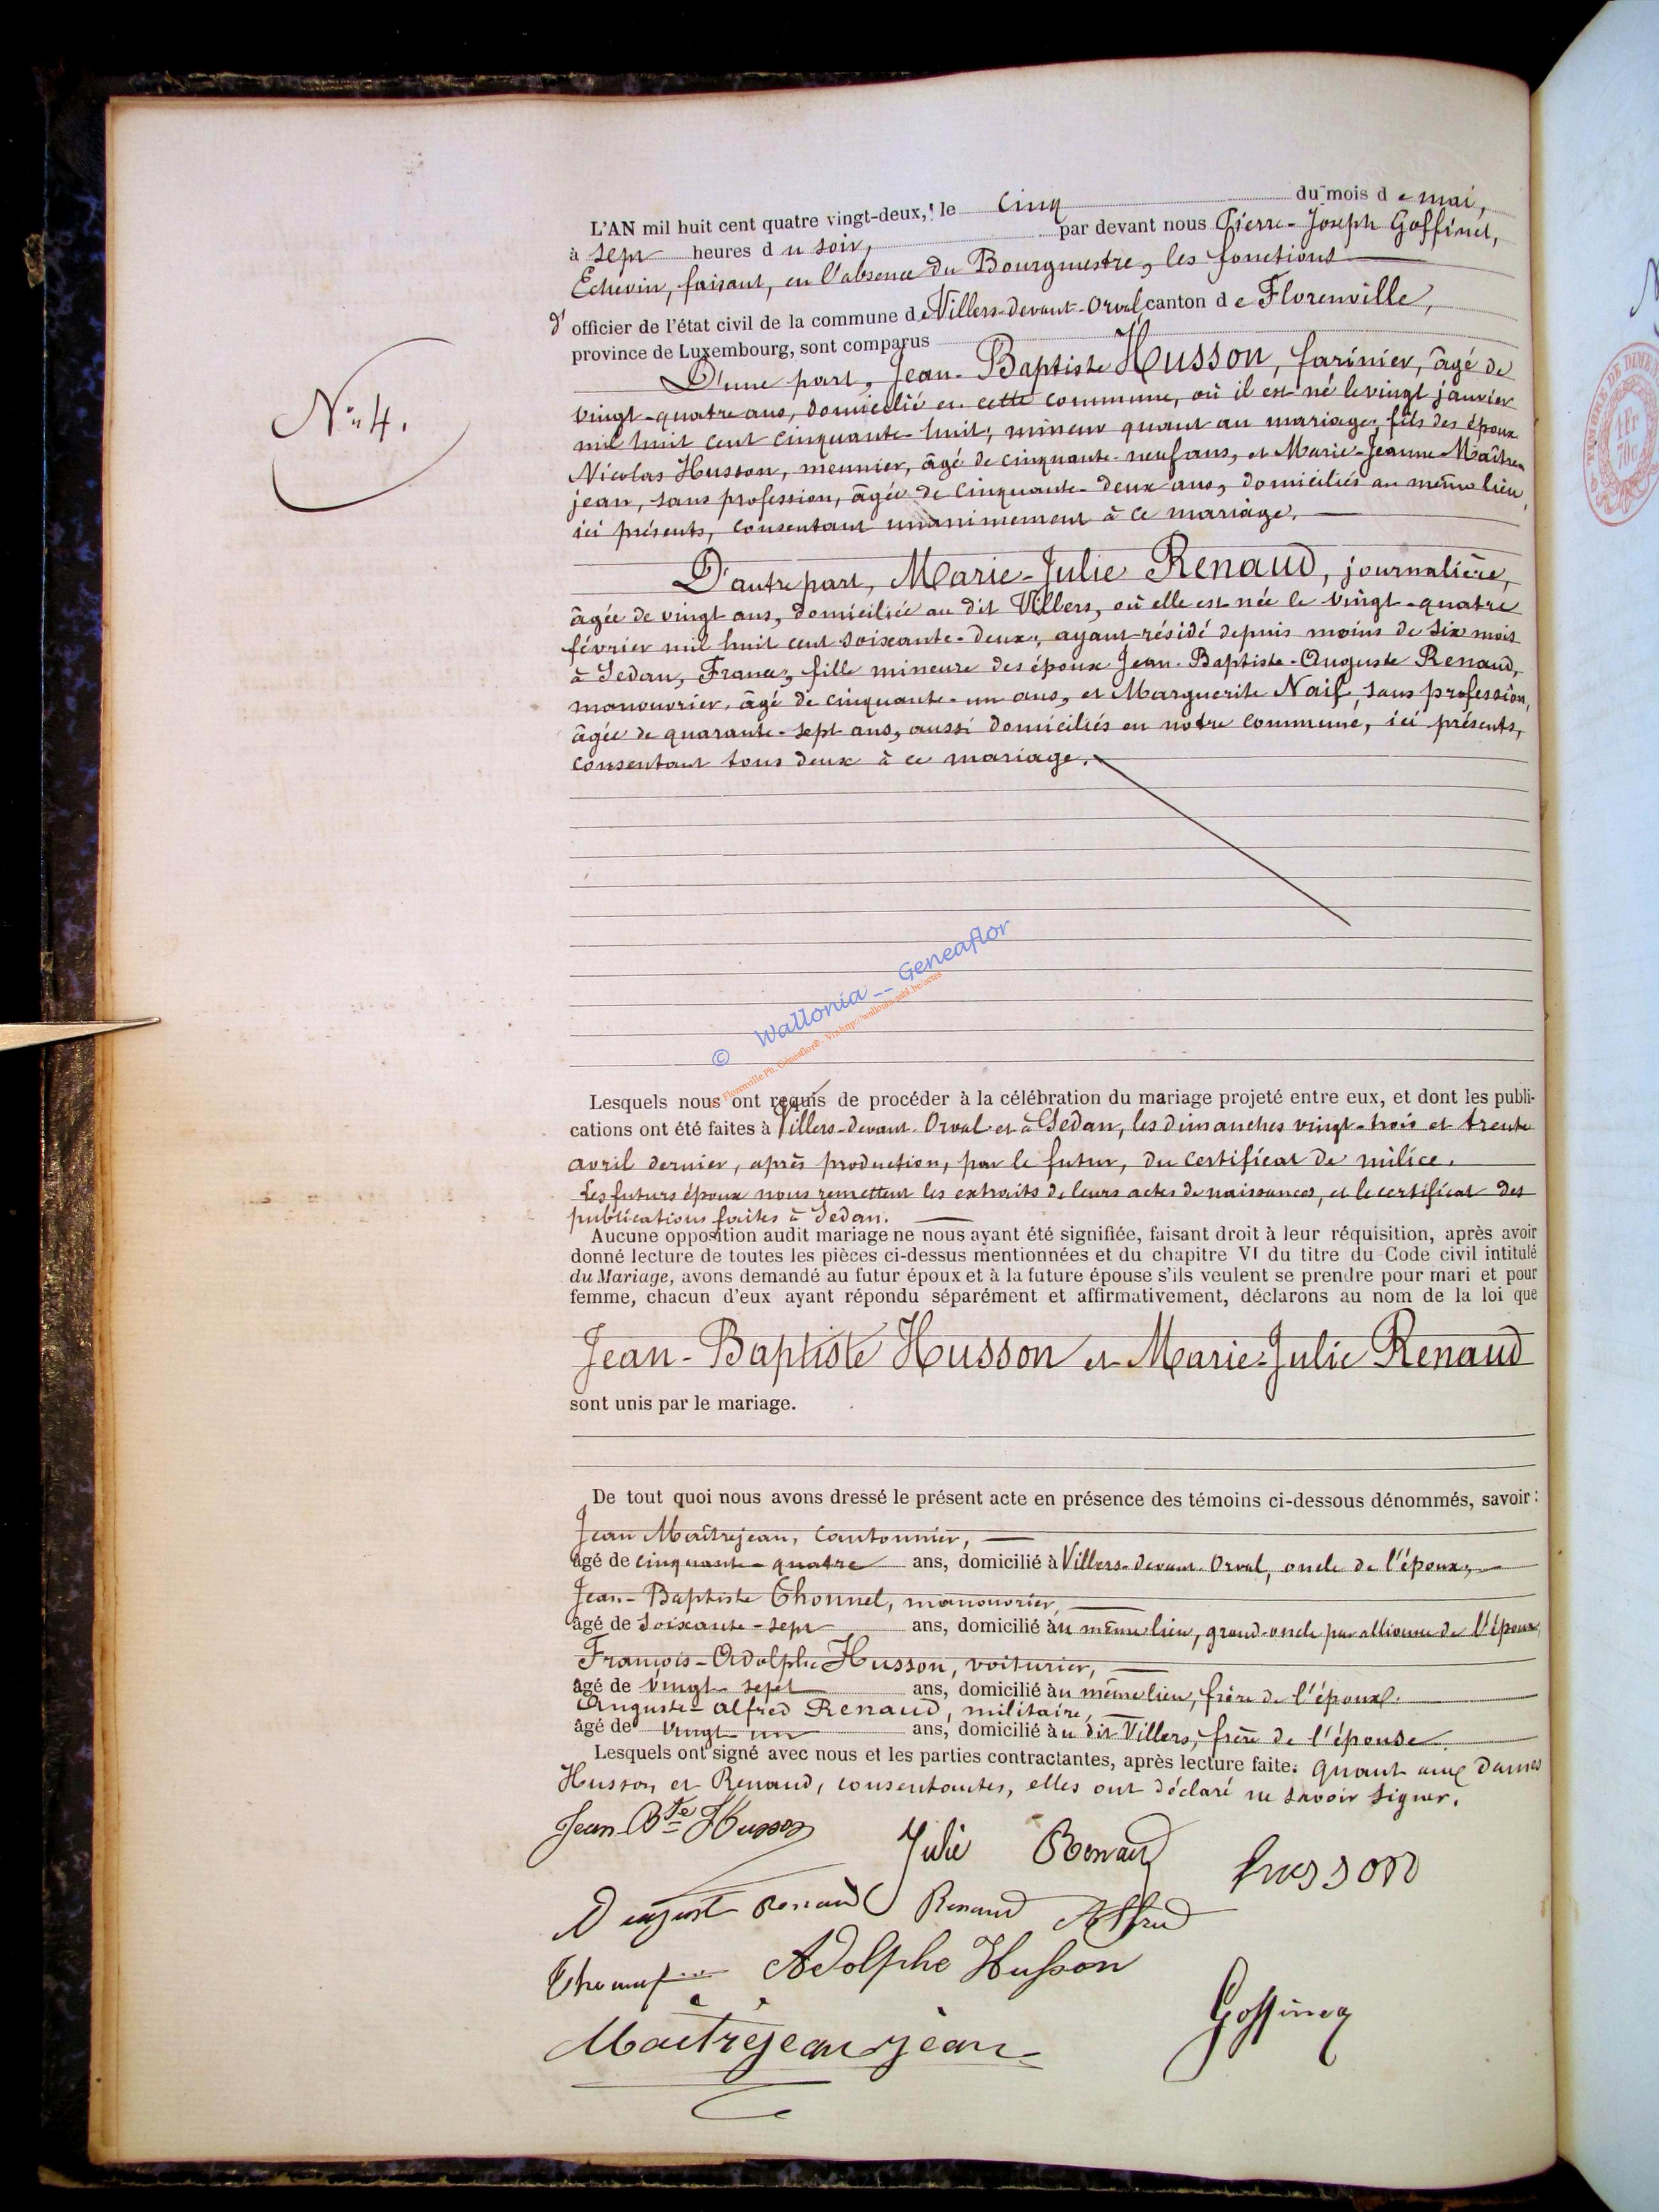 N° 4.
L'AN mil huit cent quatre vingt-deux, le cinq du mois de mai,
à sept heures du soir, par devant nous Pierre-Joseph Goffinet,
Echevin, faisant, en l'absence du Bourgmestre, les fonctions
d'officier de l'état civil de la commune de Villers-devant-Orval, canton de Florenville,
province de Luxembourg, sont comparus
D'une part, Jean-Baptiste Husson, farinier, âgé de
vingt-quatre ans, domicilié en cette commune, où il est né le vingt janvier
mil huit cent cinquante-huit, mineur quant au mariage, fils des époux
Nicolas Husson, meunier, âgé de cinquante-neuf ans, et Marie-Jeanne Maître-
jean, sans profession, âgée de cinquante-deux ans, domiciliés au même lieu,
ici présents, consentant unanimement à ce mariage.
D'autre part, Marie-Julie Renaud, journalière,
âgée de vingt ans, domiciliée au dit Villers, où elle est née le vingt-quatre
février mil huit cent soixante-deux, ayant résidé depuis moins de six mois
à Sedan, France, fille mineure des époux Jean-Baptiste-Auguste Renaud,
manouvrier, âgé de cinquante-un ans, et Marguerite Naif, sans profession,
âgée de quarante-sept ans, aussi domiciliés en notre commune, ici présents,
consentant tous deux à ce mariage.
© Wallonia -- Geneaflor
Florenville Ph. Généaflor® - Via http://wallonia-asbl.be/actes
Lesquels nous ont requis de procéder à la célébration du mariage projeté entre eux, et dont les publi-
cations ont été faites à Villers-devant-Orval et à Sedan, les dimanches vingt-trois et trente
avril dernier, après production, par le futur, du certificat de milice.
Les futurs époux nous remettent les extraits de leurs actes de naissances, et le certificat des
publications faites à Sedan.
Aucune opposition audit mariage ne nous ayant été signifiée, faisant droit à leur réquisition, après avoir
donné lecture de toutes les pièces ci-dessus mentionnées et du chapitre VI du titre du Code civil intitulé
du Mariage, avons demandé au futur époux et à la future épouse s'ils veulent se prendre pour mari et pour
femme, chacun d'eux ayant répondu séparément et affirmativement, déclarons au nom de la loi que
Jean-Baptiste Husson et Marie-Julie Renaud
sont unis par le mariage.
De tout quoi nous avons dressé le présent acte en présence des témoins ci-dessous dénommés, savoir :
Jean Maîtrejean, cantonnier,
âgé de cinquante-quatre ans, domicilié à Villers-devant-Orval, oncle de l'époux,
Jean-Baptiste Thonnel, manouvrier,
âgé de soixante-sept ans, domicilié au même lieu, grand-oncle par alliance de l'époux,
François-Adolphe Husson, voiturier,
âgé de vingt-sept ans, domicilié au même lieu, frère de l'époux.
Auguste-Alfred Renaud, militaire,
âgé de vingt-un ans, domicilié au dit Villers, frère de l'épouse.
Lesquels ont signé avec nous et les parties contractantes, après lecture faite. Quant aux dames
Husson et Renaud, consentantes, elles ont déclaré ne savoir signer.
Jean Bte Husson
Julie Renaud
husson
Renaud Renaud Alfred
Adolphe Husson
Goffinet
Maîtrejean jean